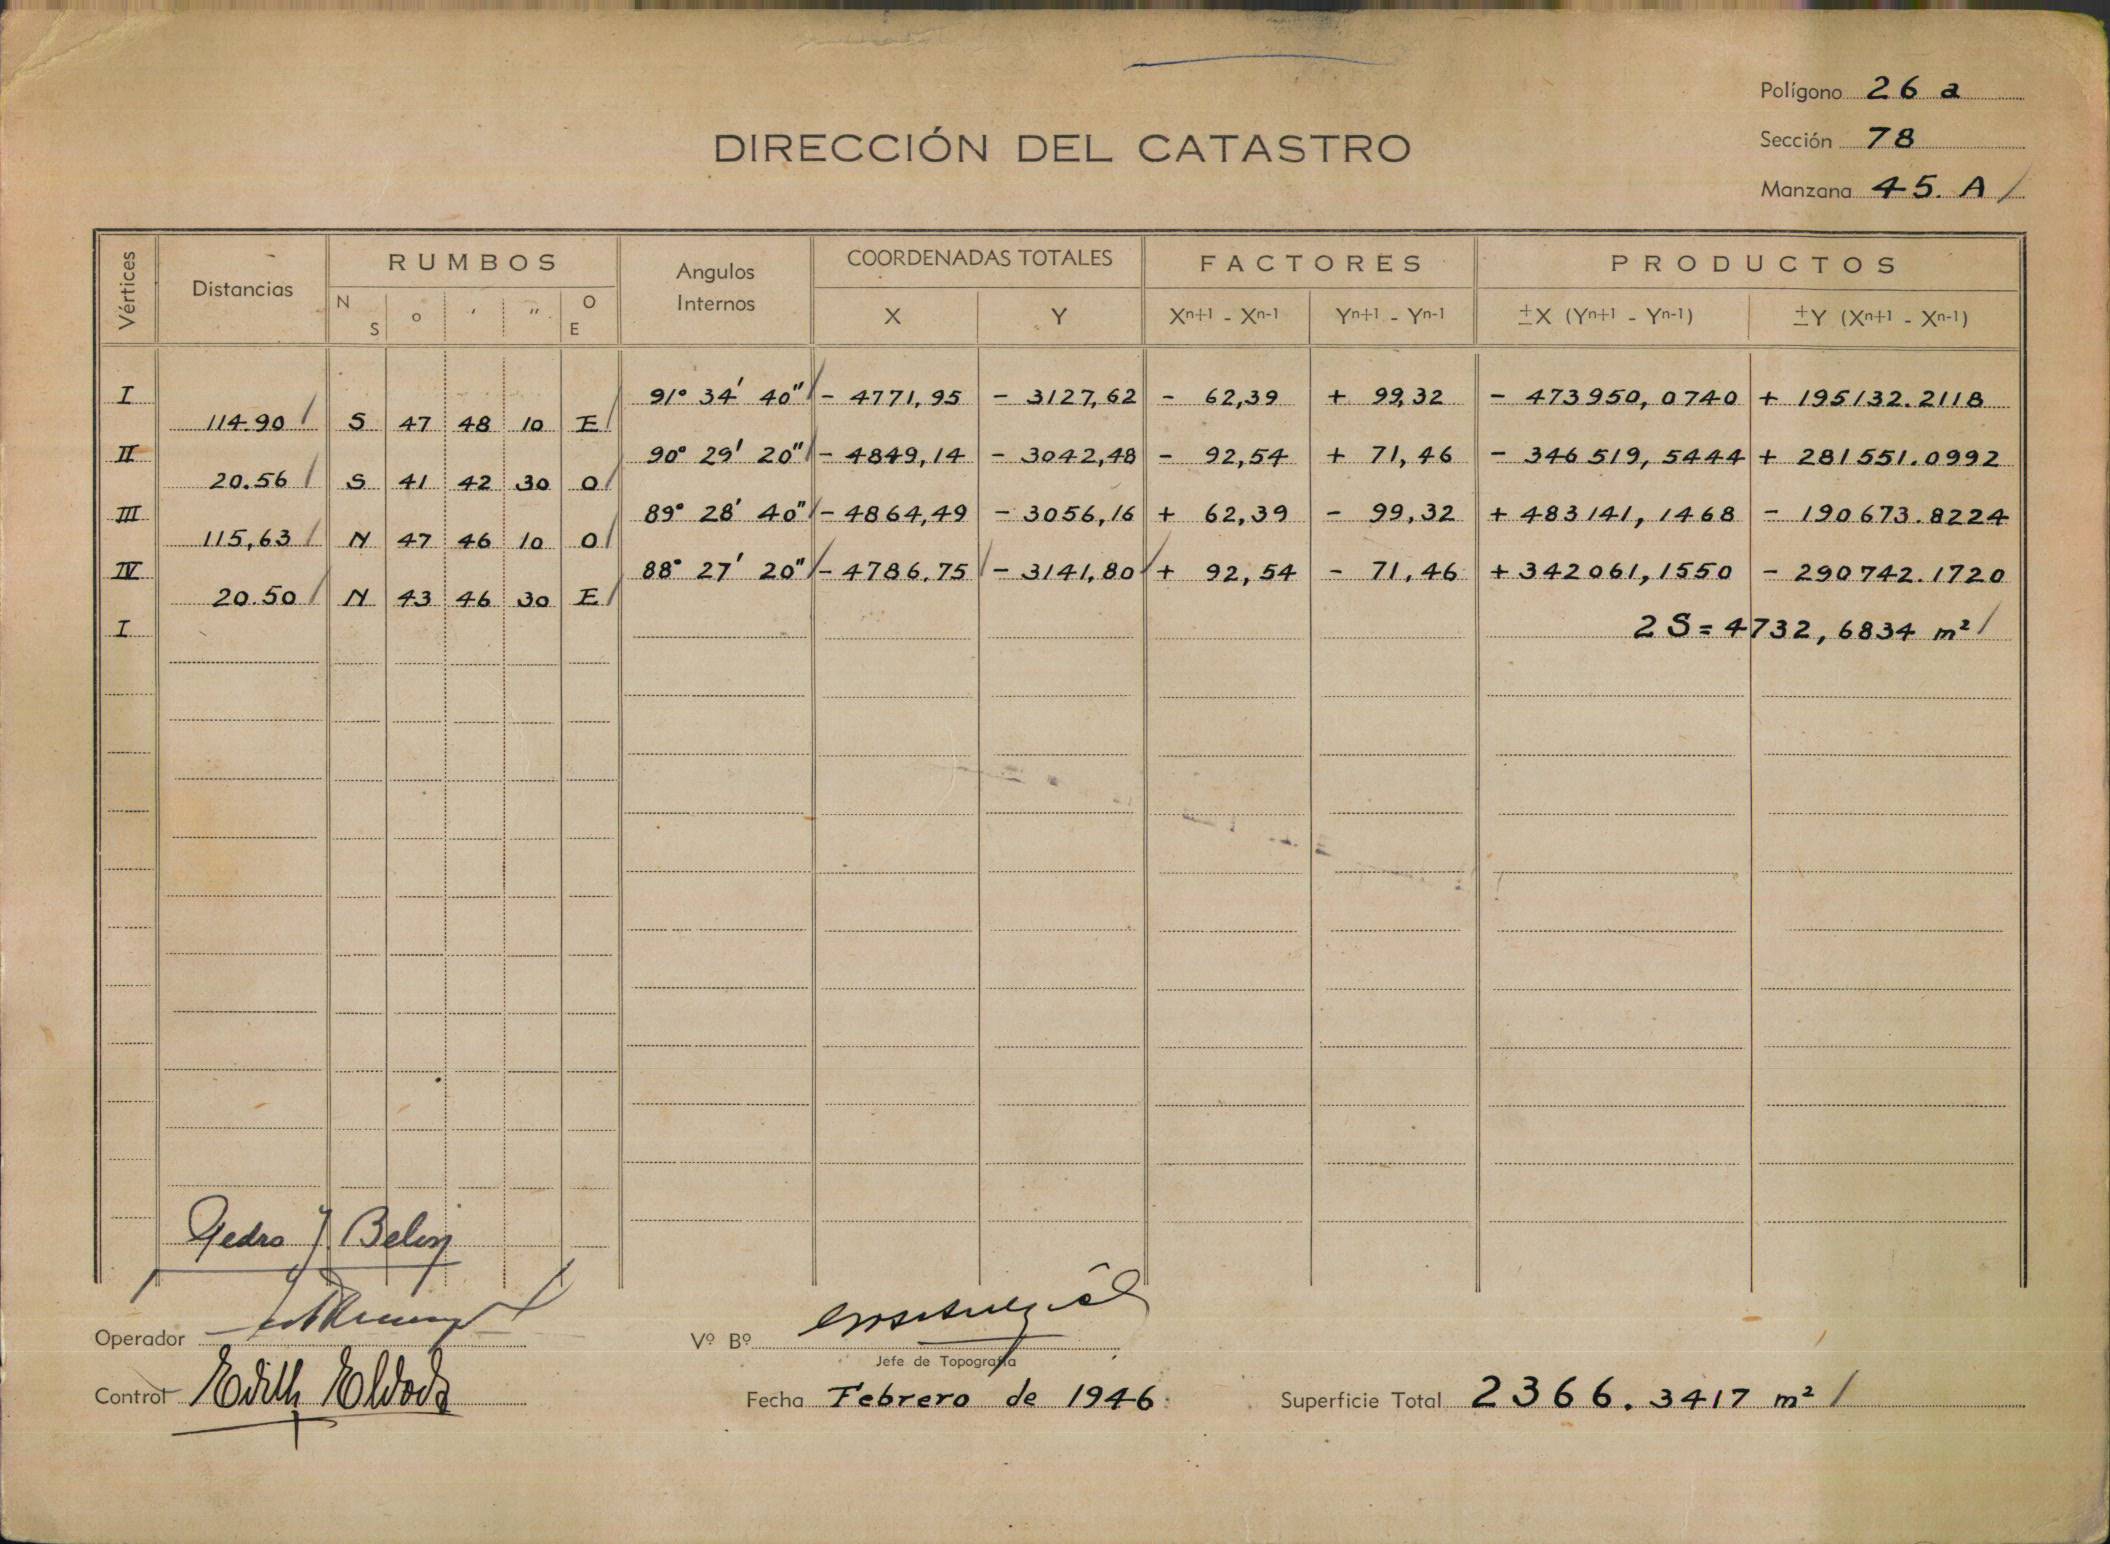 Polígono 26 a
DIRECCIÓN DEL CATASTRO
Sección 78
Manzana 45. A /
Vértices
Distancias
RUMBOS
N S ° ' " O E
Angulos Internos
COORDENADAS TOTALES
X Y
FACTORES
Xn+1 - Xn-1 Yn+1 - Yn-1
PRODUCTOS
±X (Yn+1 - Yn-1) ±Y (Xn+1 - Xn-1)
I 91° 34' 40" / - 4771,95 - 3127,62 - 62,39 + 99,32 - 473950,0740 + 195132.2118
114.90 / S 47 48 10 E /
II 90° 29' 20" / - 4849,14 - 3042,48 - 92,54 + 71,46 - 346519,5444 + 281551.0992
20.56 / S 41 42 30 O /
III 89° 28' 40" / - 4864,49 - 3056,16 + 62,39 - 99,32 + 483141,1468 - 190673.8224
115,63 / N 47 46 10 O /
IV 88° 27' 20" / - 4786.75 / - 3141,80 / + 92,54 - 71,46 + 342061,1550 - 290742.1720
20.50 / N 43 46 30 E /
I 2 S = 4732,6834 m² /
Pedro J. 
Operador
Vº Bº
Jefe de Topografía
Control Edith
Fecha Febrero de 1946
Superficie Total 2366.3417 m² /